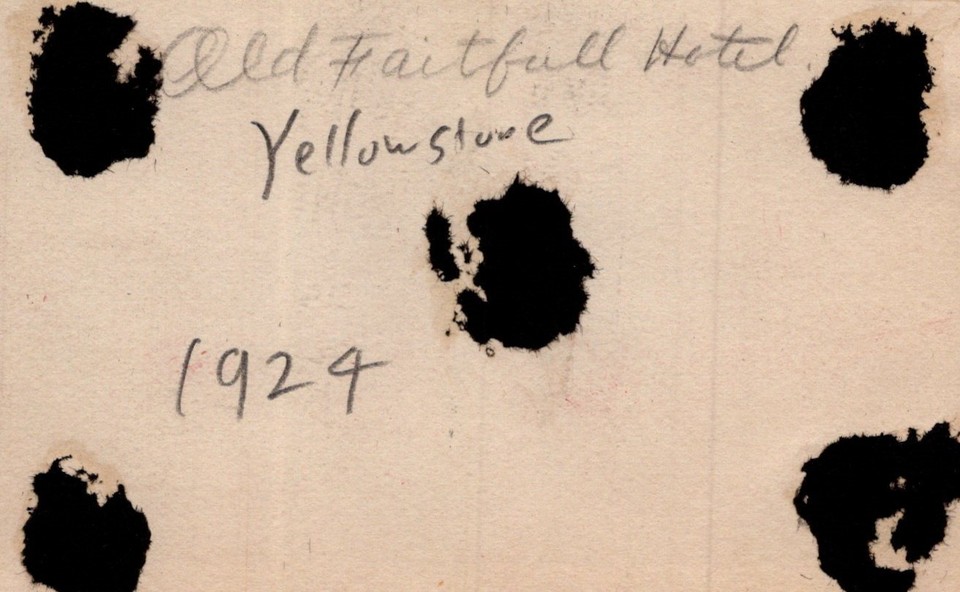 Old Faitfull Hotel.
Yellowstone
1924